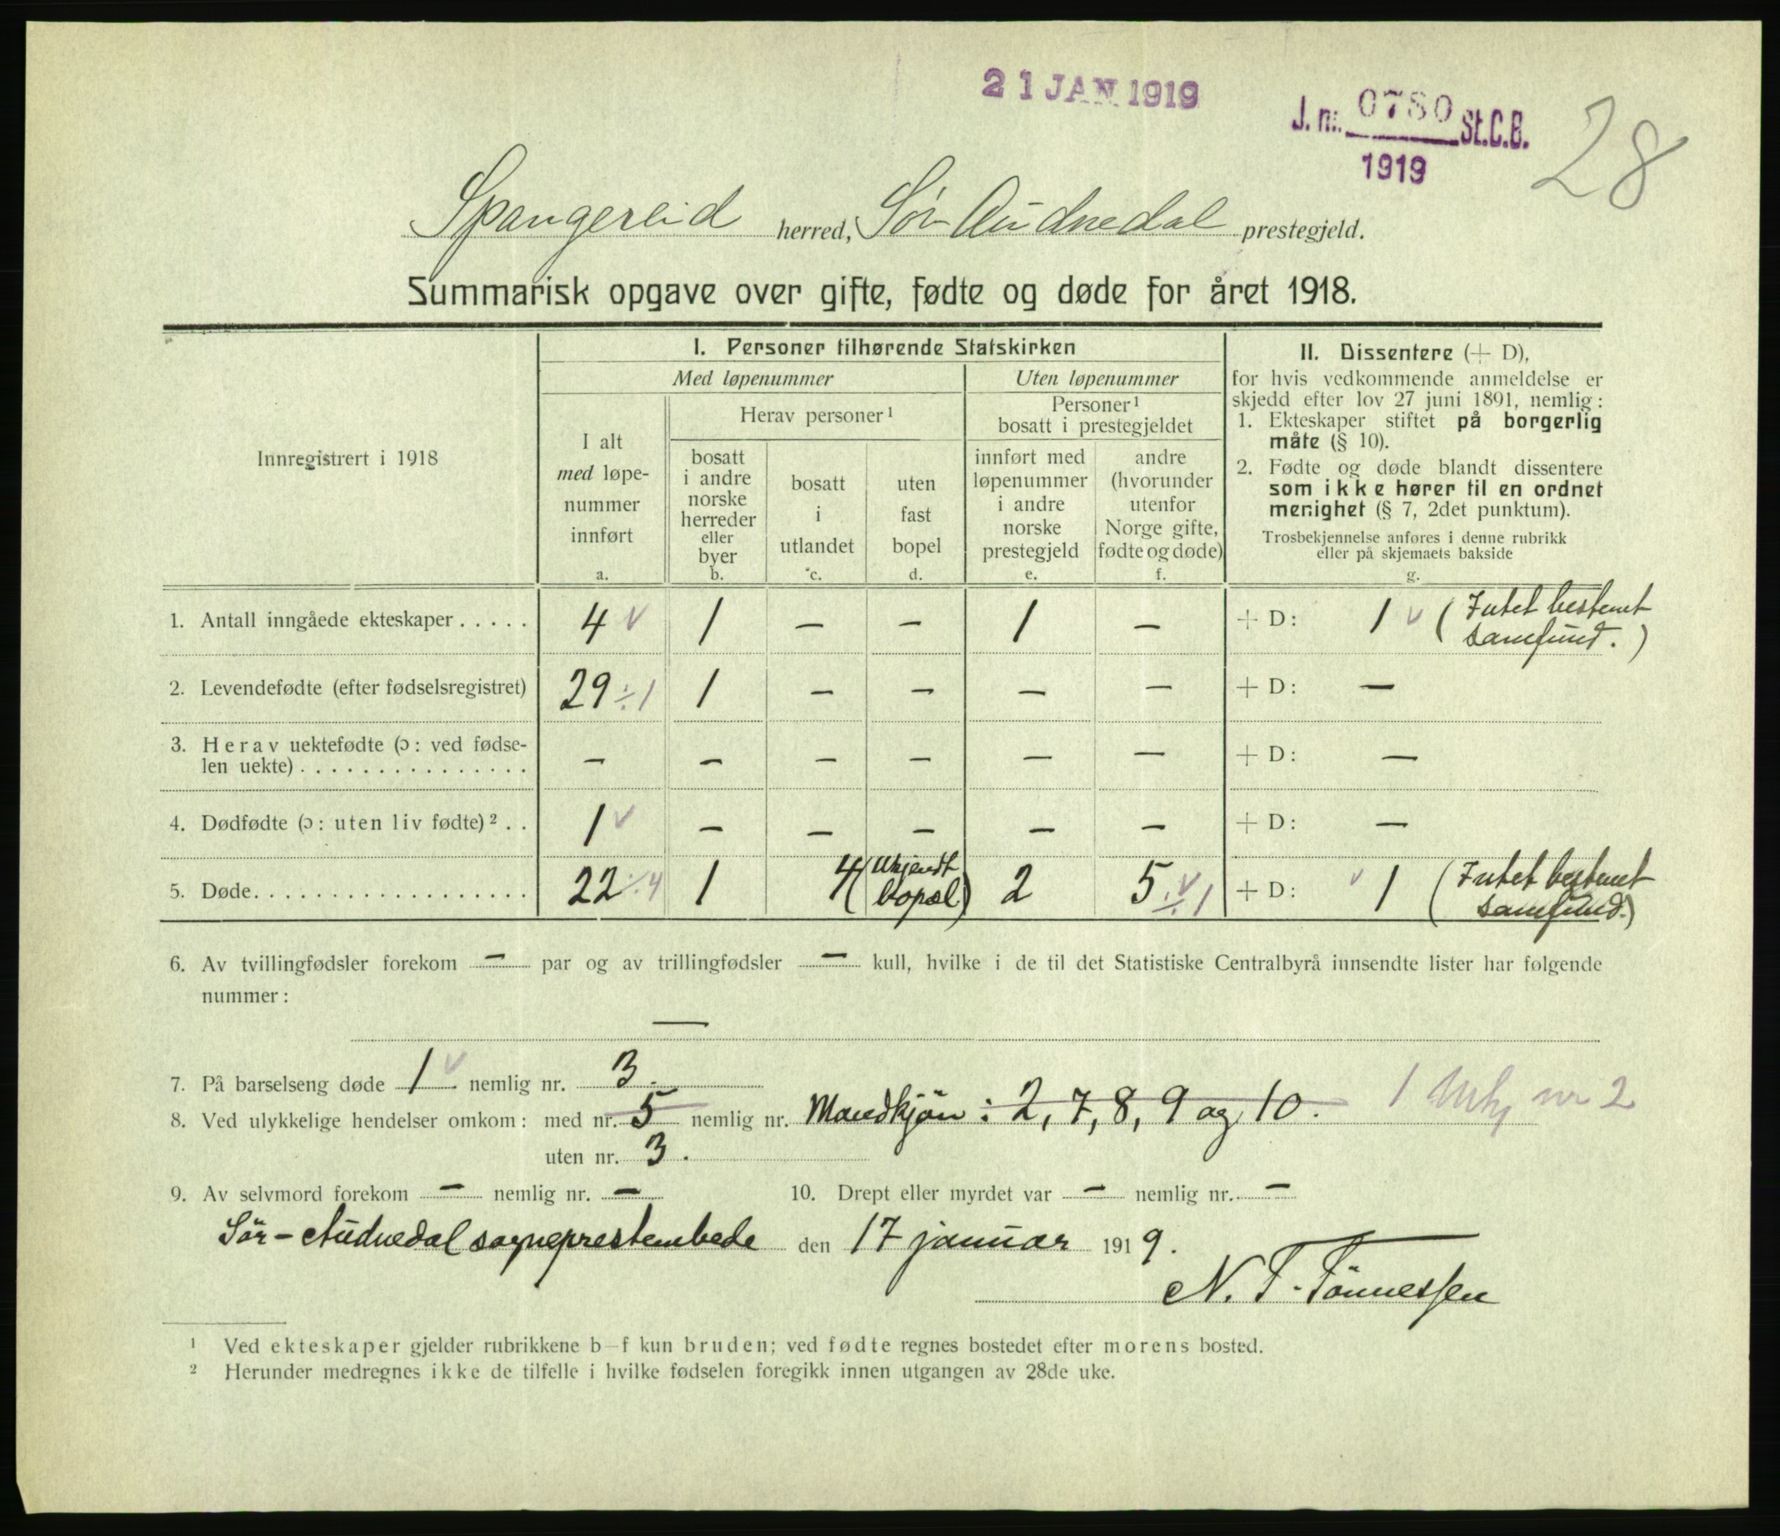 21 JAN 1919
J. nr. 0780 St.C.B.
1919
28
Spangereid herred, Sör-Audnedal prestegjeld.
Summarisk opgave over gifte, fødte og døde for året 1918.
Innregistrert i 1918
I. Personer tilhørende Statskirken
Med løpenummer
Uten løpenummer
I alt
med løpe-
nummer
innført
a.
Herav personer¹
bosatt
i andre
norske
herreder
eller
byer
b.
bosatt
i
utlandet
c.
uten
fast
bopel
d.
Personer¹
bosatt i prestegjeldet
innført med
løpenummer
i andre
norske
prestegjeld
e.
andre
(hvorunder
utenfor
Norge gifte,
fødte og døde)
f.
II. Dissentere (+ D),
for hvis vedkommende anmeldelse er
skjedd efter lov 27 juni 1891, nemlig:
1. Ekteskaper stiftet på borgerlig
måte (§ 10).
2. Fødte og døde blandt dissentere
som ikke hører til en ordnet
menighet (§ 7, 2det punktum).
Trosbekjennelse anføres i denne rubrikk
eller på skjemaets bakside
g.
1. Antall inngåede ekteskaper . . . . . 4 v 1 – – 1 – + D: 1 v (Intet bestemt
samfund.)
2. Levendefødte (efter fødselsregistret) 29 ÷1 1 – – – – + D: –
3. Herav uektefødte (ɔ: ved fødse-
len uekte) . . . . . . . . . . . . . . . – – – – – – + D: –
4. Dødfødte (ɔ: uten liv fødte)² . . 1 v – – – – – + D: –
5. Døde. . . . . . . . . . . . . . . . . . 22 ÷4 1 4 (Ukjendt
bopæl) 2 5 v ÷1 + D: v 1 (Intet bestemt
samfund.)
6. Av tvillingfødsler forekom – par og av trillingfødsler – kull, hvilke i de til det Statistiske Centralbyrå innsendte lister har følgende
nummer:
–
7. På barselseng døde 1 v nemlig nr. 3.
8. Ved ulykkelige hendelser omkom: med nr. 5 nemlig nr. Mandkjön: 2, 7, 8, 9 og 10. 1 nr 2
uten nr. 3.
9. Av selvmord forekom – nemlig nr. – 10. Drept eller myrdet var – nemlig nr. –
Sör-Audnedal sogneprestembede den 17 januar 1919.
N. T. Tönnessen
¹ Ved ekteskaper gjelder rubrikkene b–f kun bruden; ved fødte regnes bostedet efter morens bosted.
² Herunder medregnes ikke de tilfelle i hvilke fødselen foregikk innen utgangen av 28de uke.